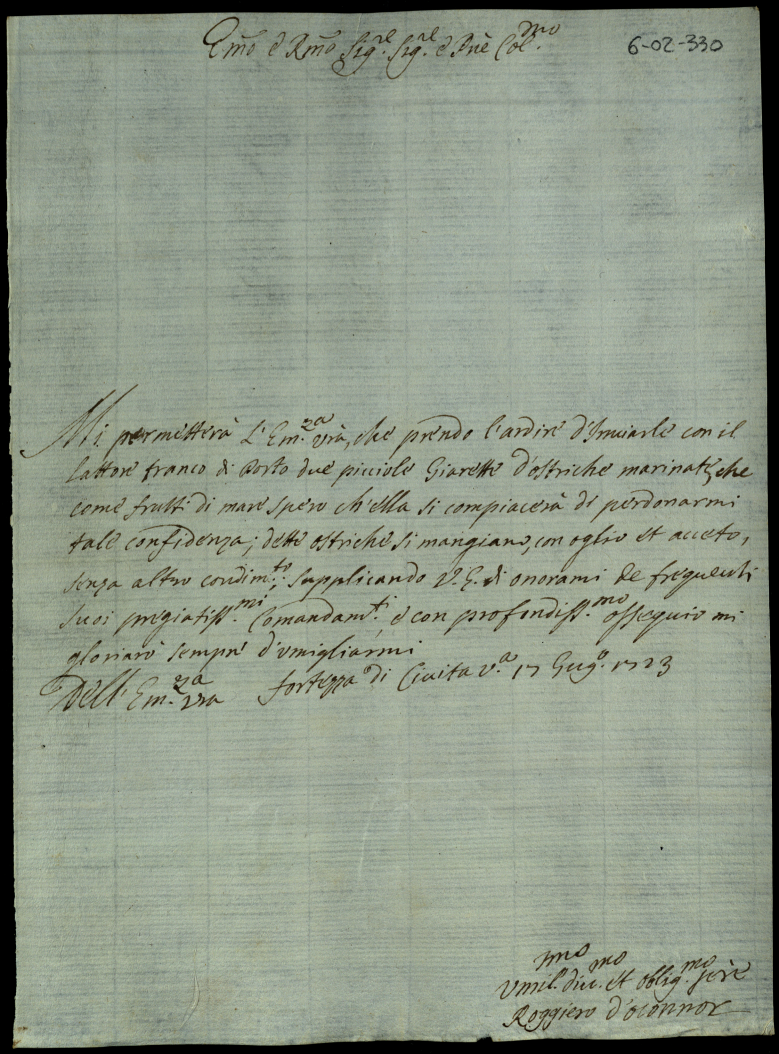 Emo è Rmo Sig.re Sig.re è Pnè Col.mo
6-02-330
Mi permetterà L'Em.za Vrà, che prendo l'ardire d'Inuiarle con il
lattore franco di Porto due picciole Giarette d'ostriche marinate, che
come frutti di mare spero ch'ella si compiacerà di perdonarmi
tale confidenza; dette ostriche si mangiano, con oglio et acceto,
senza altro condim.to; supplicando V.E. di onorarmi de frequenti
suoi pregiatiss.mi Comandam.ti, è con profondiss.mo ossequio mi
gloriarò sempre d'umigliarmi
Dell Em.za Vra fortezza di Ciuita V.a 17 Giug.o 1723
Vmil.mo diu.mo et oblig.mo serè
Roggiero d'oconnor